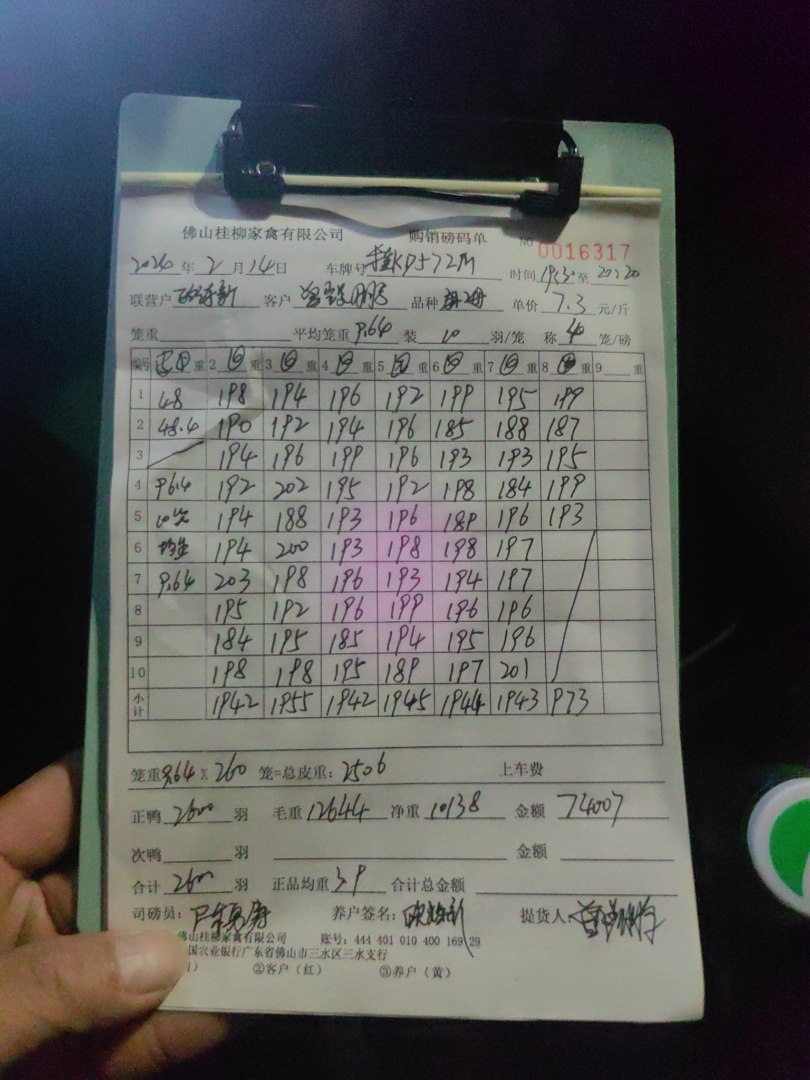 佛山桂柳家禽有限公司 购销磅码单 NO 0016317
2024年2月14日 车牌号 桂KD572M 时间 1930至2020
联营户 客户 品种 单价 7.3 元/斤
笼重 平均笼重 9.64 装 10 羽/笼 称 40 笼/磅
编号 重 2 重 3 重 4 重 5 重 6 重 7 重 8 重 9 重
1 48 198 194 196 192 199 195 199
2 48.4 190 192 194 196 185 188 187
3 194 196 199 196 193 193 195
4 96.4 192 202 195 192 198 184 199
5 194 188 193 196 189 196 193
6 194 200 193 198 198 197
7 9.64 203 198 196 193 194 197
8 195 192 196 199 196 196
9 184 195 185 194 195 196
10 198 198 195 189 197 201
小计 1942 1955 1942 1945 1944 1943 973
笼重 9.64 X 260 笼=总皮重: 2506 上车费
正鸭 2600 羽 毛重 12644 净重 10138 金额 74007
次鸭 羽 金额
合计 2600 羽 正品均重 3.9 合计总金额
司磅员: 养户签名: 提货人:
佛山桂柳家禽有限公司 账号: 444 401 010 400 169 29
国农业银行广东省佛山市三水区三水支行
②客户(红) ③养户(黄)